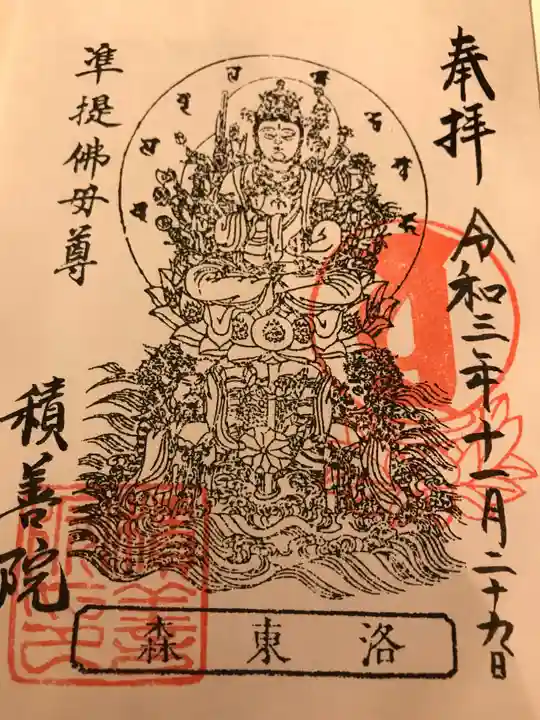 奉拝 令和三年十一月二十九日
準提佛母尊
積善院
洛東森